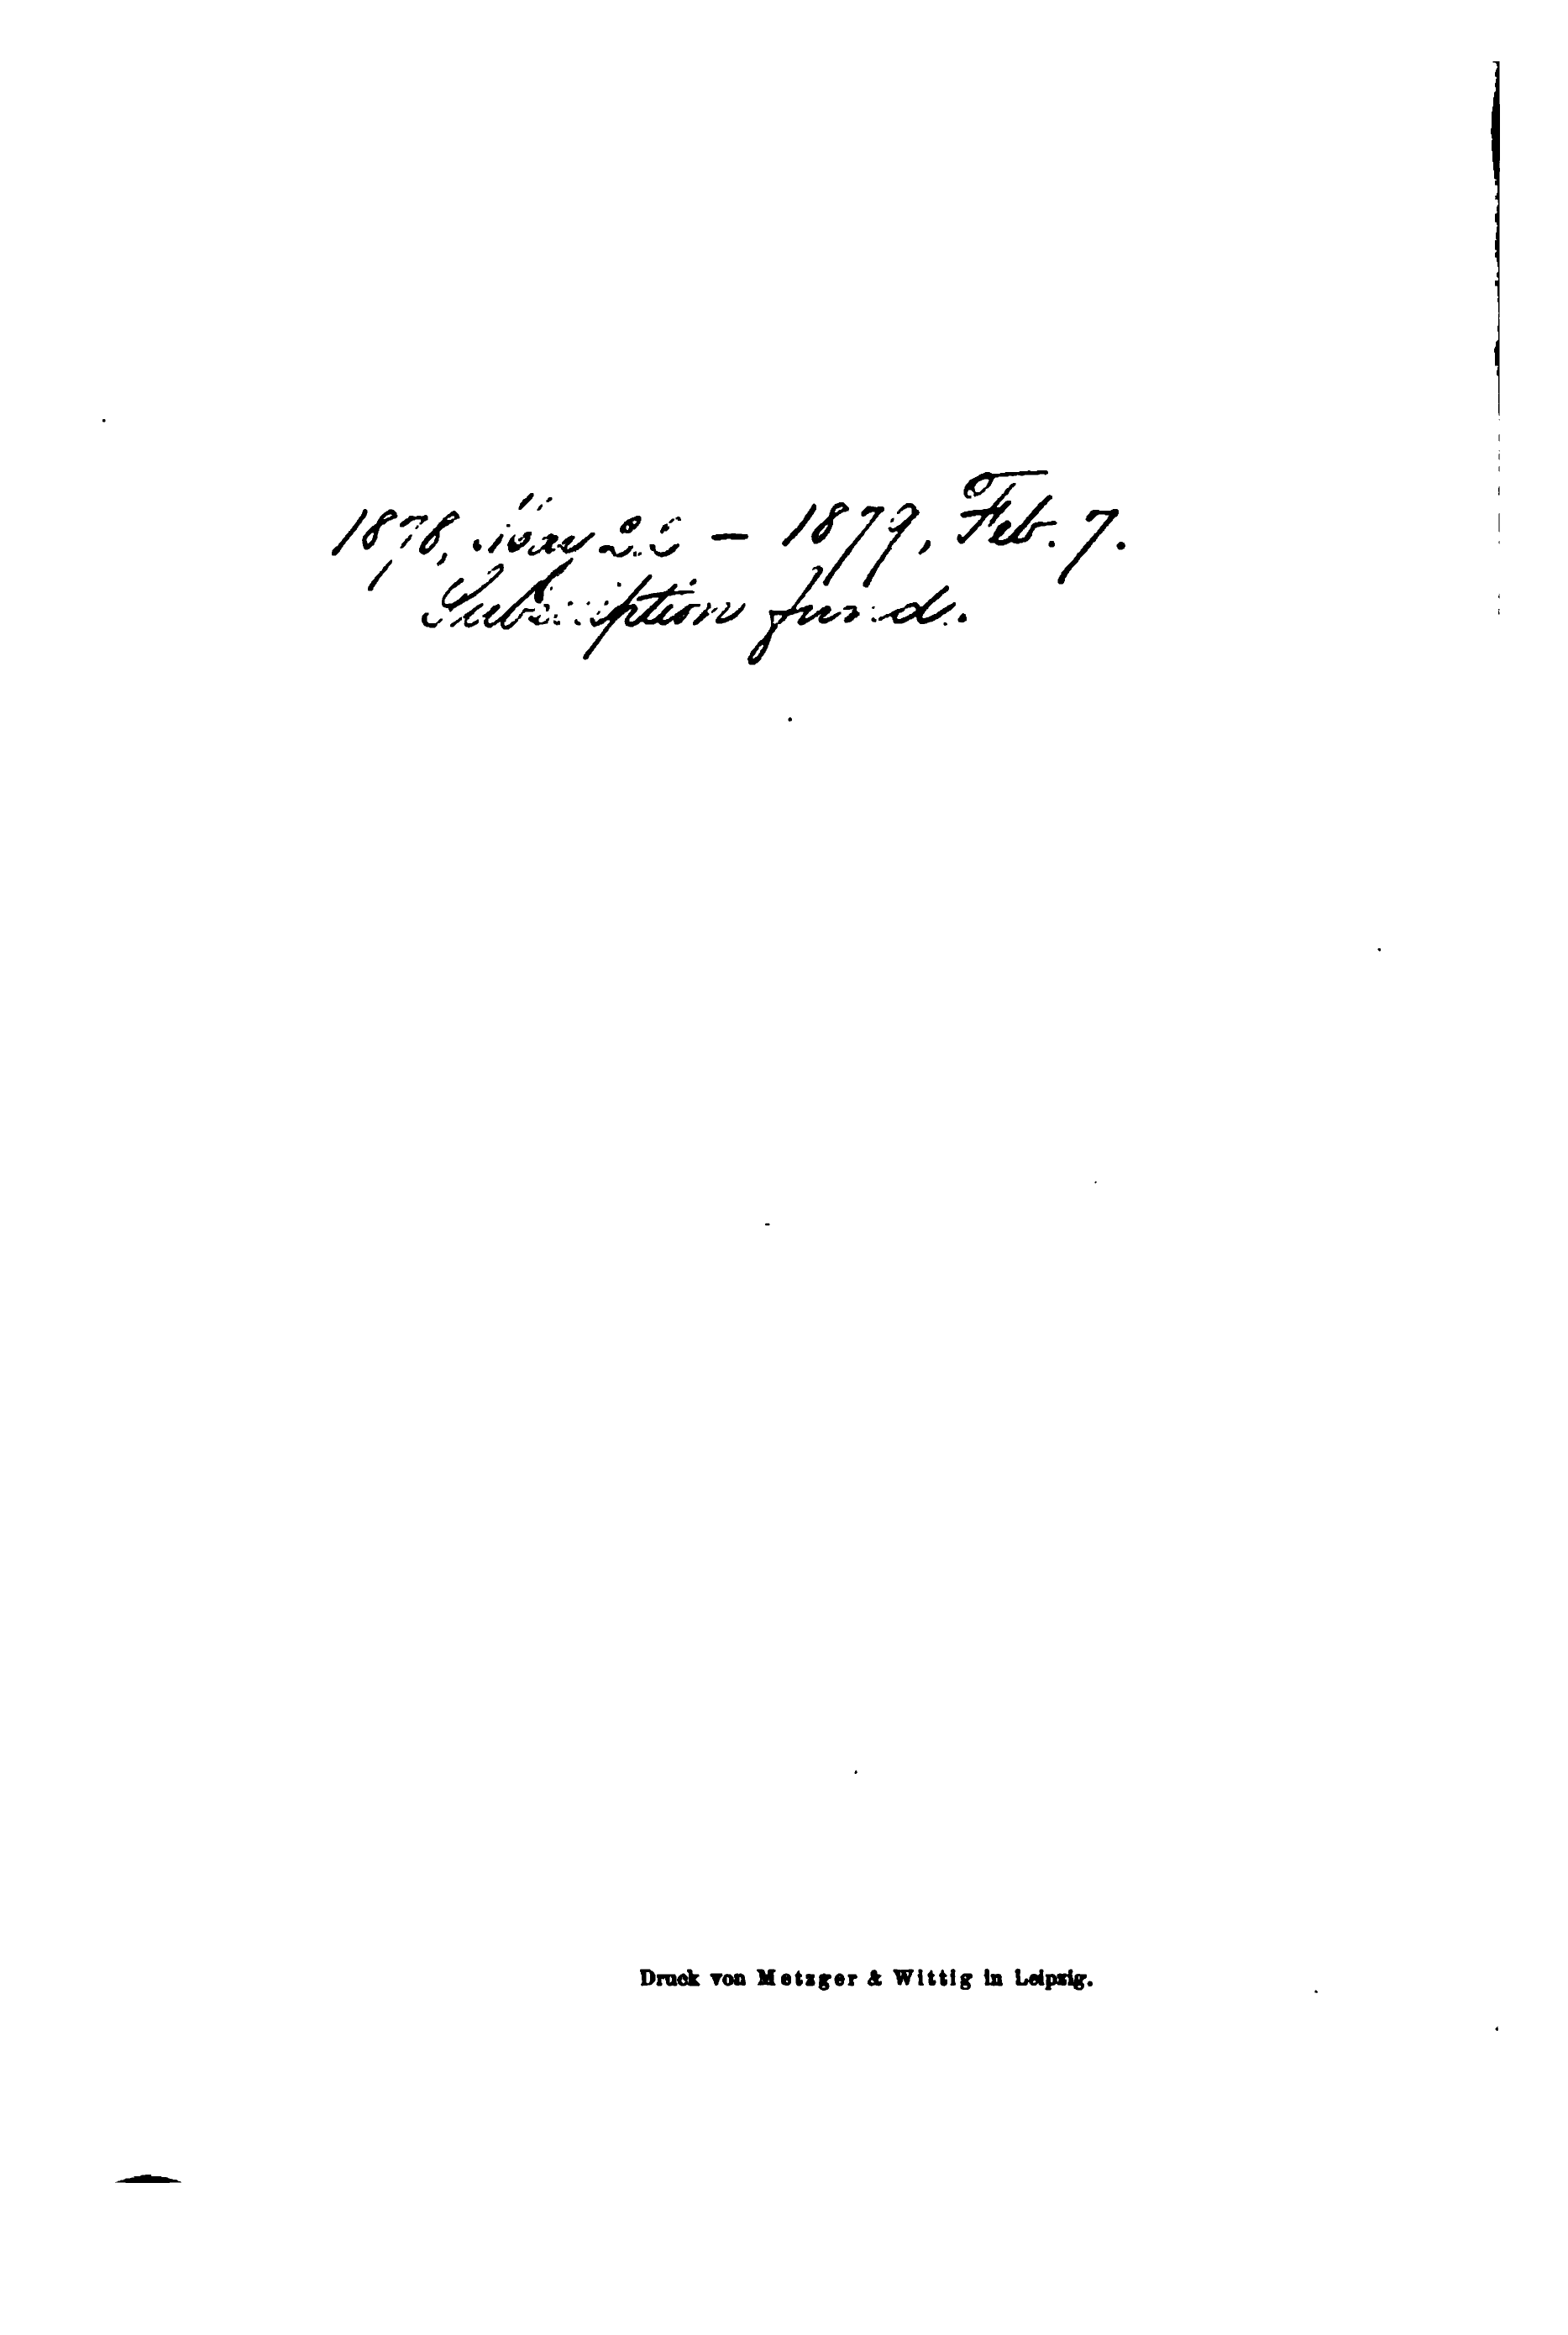 1878, Nov 22 – 1879, Feb. 7.
Subscription fund.
Druck von Metzger & Wittig in Leipzig.